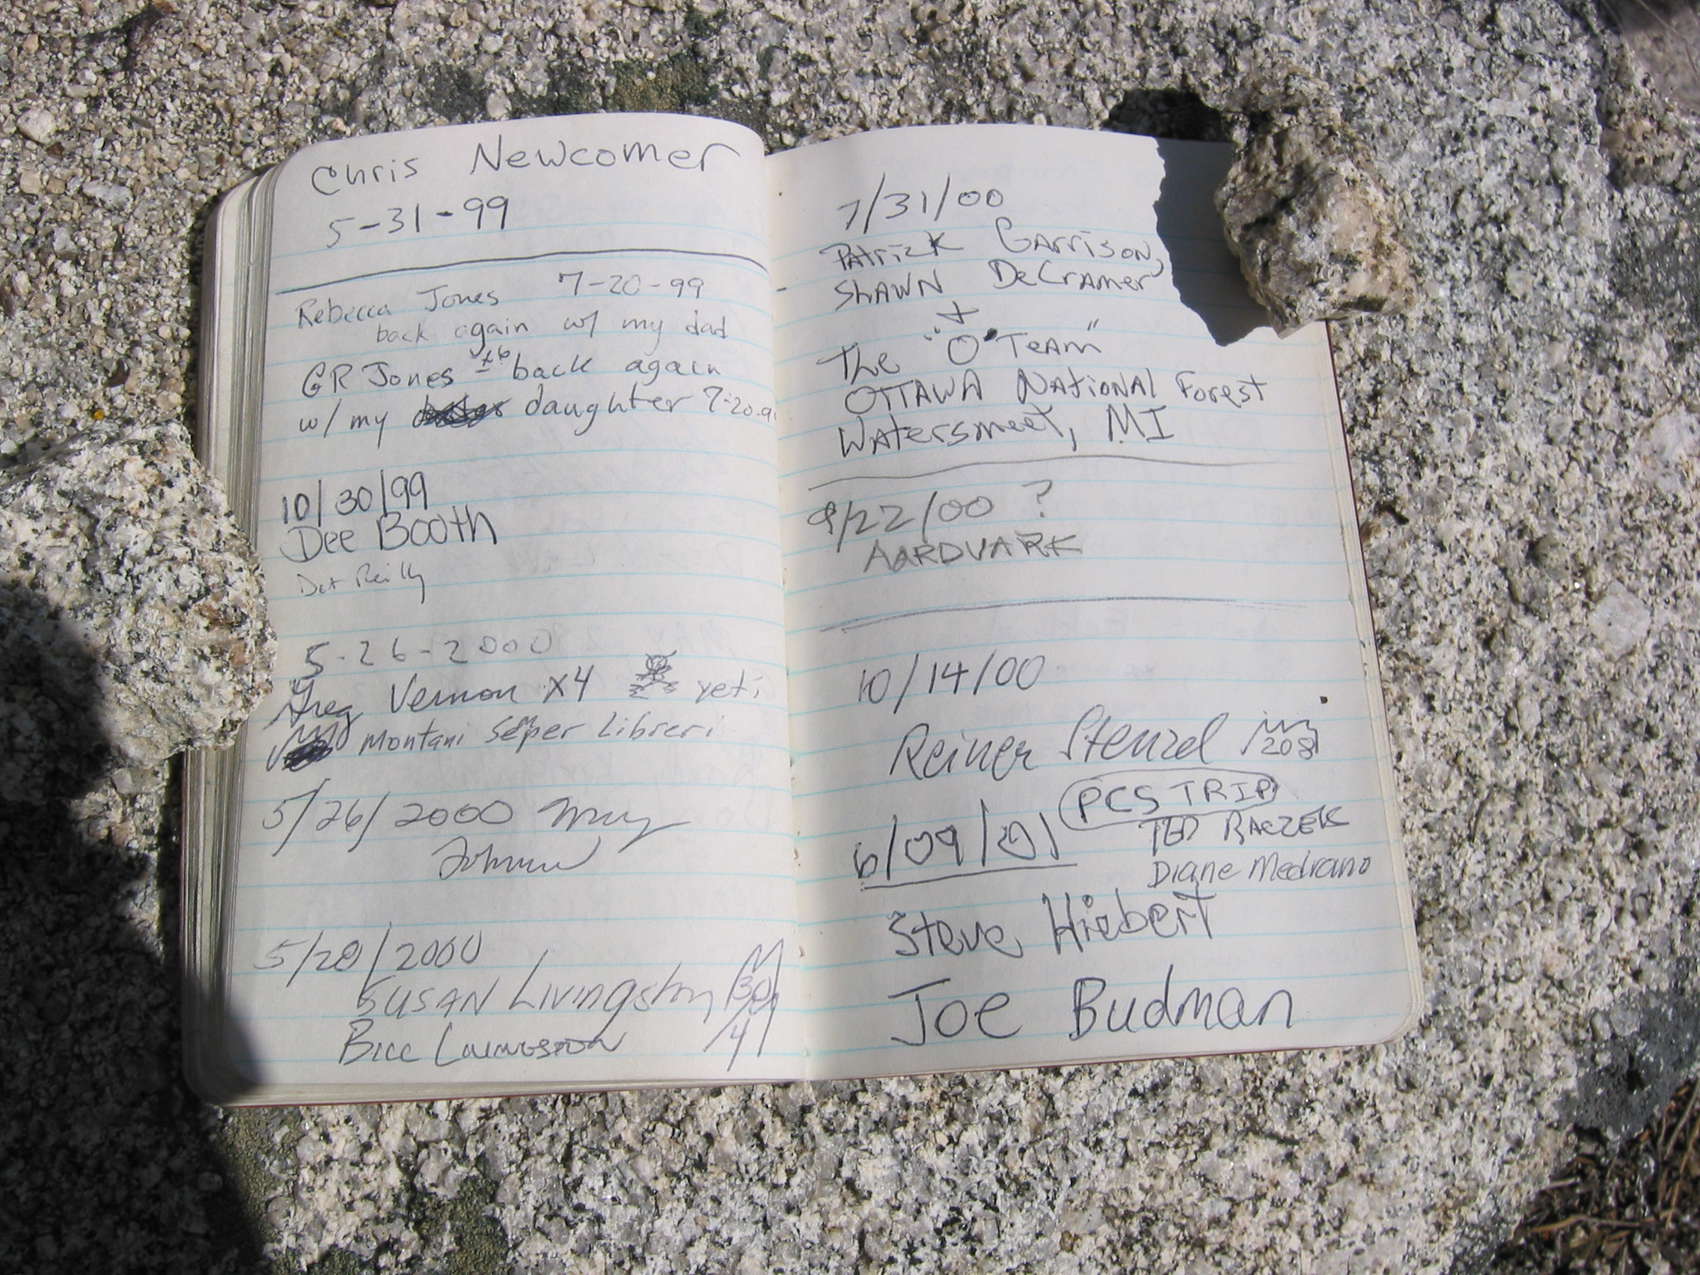 Chris Newcomer
5-31-99
Rebecca Jones 7-20-99
back again w/ my dad
GR Jones back again
w/ my daughter 7-20-9
10/30/99
Dee Booth
Dot Reilly
5-26-2000
Greg Vernon x4 yeti
Montani Semper Liberi
5/26/2000
Johnson
5/28/2000
SUSAN Livingston
BILL LIVINGSTON
7/31/00
PATRICK GARRISON,
SHAWN DeCRAMER
+
The "O" Team"
OTTAWA National Forest
Watersmeet, MI
9/22/00 ?
AARDVARK
10/14/00
Reiner Stenzel
208
6/09/01 PCS TRIP
TED RACZEK
Diane Medrano
Steve Hiebert
Joe Budman